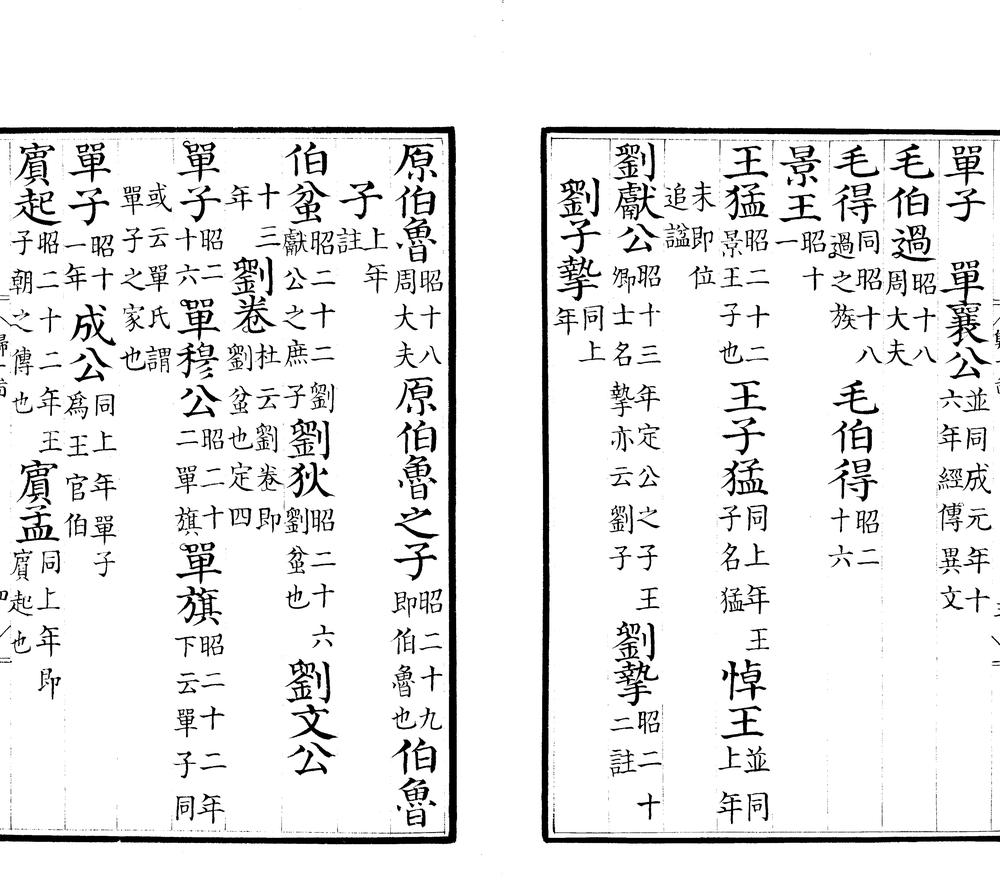 單子 單襄公並同成元年十六年經傳異文
毛伯過昭十八周大夫
毛得同昭十八過之族 毛伯得昭二十六
景王昭十一
王猛昭二十二景王子也 王子猛同上年王子名猛 悼王並同上年
未即位追謚
劉獻公昭十三年定公之子王卿士名摯亦云劉子 劉摯昭二十二註
劉子摯同上年
原伯魯昭十八周大夫 原伯魯之子昭二十九即伯魯也 伯魯
子上年註
伯蚠昭二十二劉獻公之庶子 劉狄昭二十六劉蚠也 劉文公
十三年 劉卷杜云劉卷即劉蚠也定四
單子昭二十六 單穆公昭二十二單旗 單旗昭二十二年下云單子同
或云單氏謂單子之家也
單子昭十一年 成公同上年單子爲王官伯
賔起昭二十二年王子朝之傳也 賔孟同上年即賔起也